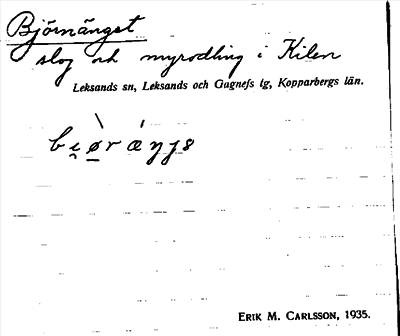 Björnänget
slog och myrodling i Kilen
Leksands sn, Leksands och Gagnefs tg, Kopparbergs län.
ERIK M. CARLSSON, 1935.